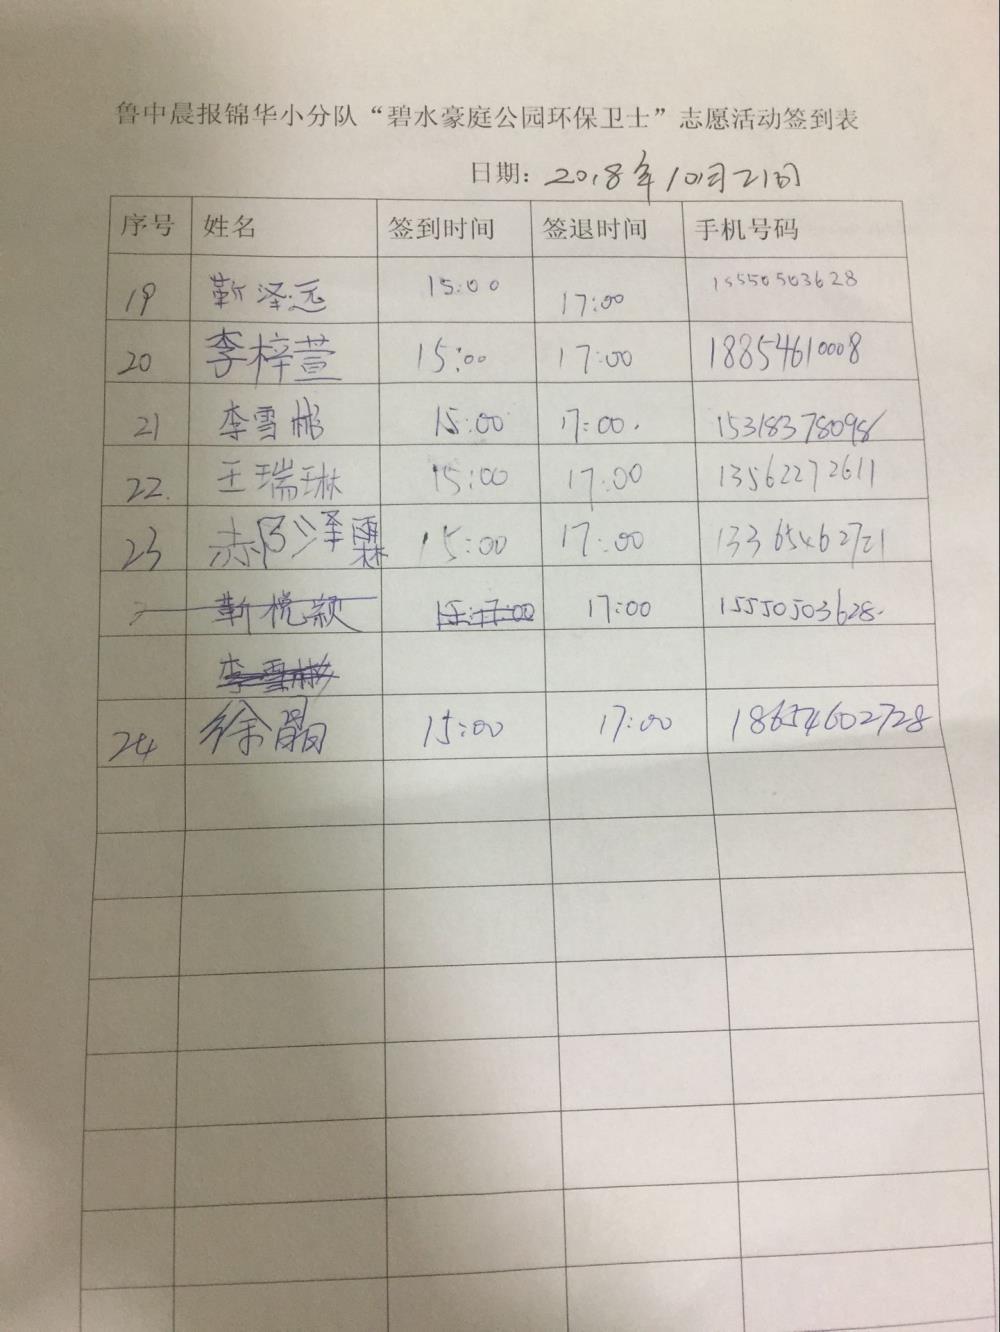 鲁中晨报锦华小分队“碧水豪庭公园环保卫士”志愿活动签到表
日期：2018年10月21日
序号 姓名 签到时间 签退时间 手机号码
19 靳泽远 15:00 17:00 15550503628
20 李梓萱 15:00 17:00 18854610008
21 李雪彬 15:00 17:00. 15318378098
22. 王瑞琳 15:00 17:00 13562272611
23 赤阝泽霖 15:00 17:00 13365462721
靳悦颖 17:00 15550503628.
李雪彬
24 徐晶 15:00 17:00 18654602728